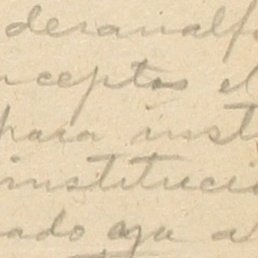 desanalfa
nceptos el
para inst
institucio
ado aya a